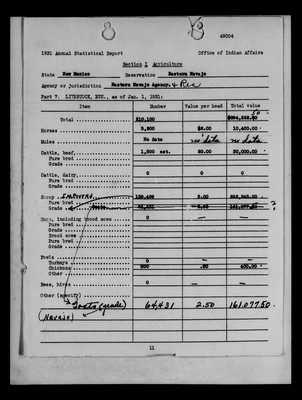 49054
1931 Annual Statistical Report Office of Indian Affairs
Section I Agriculture
State New Mexico Reservation Eastern Navajo
Agency or jurisdiction Eastern Navajo Agency, + Res
Part 7. LIVESTOCK, ETC., as of Jan. 1, 1931:
Item Number Value per head Total value
Total 210,100
Horses 5,200 $2.00 10,400.00
Mules No data no data no data
Cattle, beef, 1,500 est. 20.00 30,000.00
Pure bred
Grade
Cattle, dairy 0 0 0
Pure bred
Grade
Sheep
Pure bred
Grade
Hogs, including brood sows 0 — —
Pure bred
Grade
Brood sows
Pure bred
Grade
Fowls
Turkeys 0 — —
Chickens 800 .50 400.00
Other
Bees, hives 0 — —
Other (specify)
Goats (grade) 64,431 2.50 161,077.50
(NAVAJO)
11